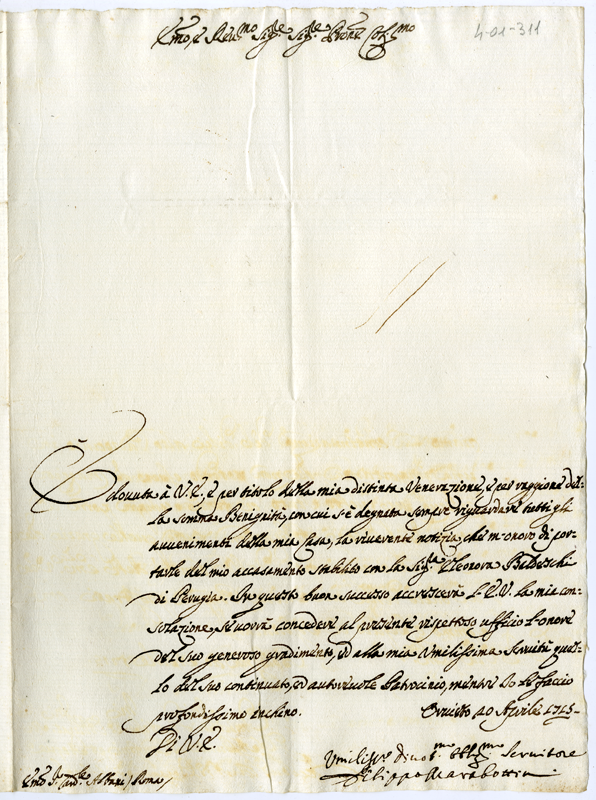 4-01-311
Emo, e Reu.mo Sig.re Sig.re Prone Col.mo
È douuta à V. E., e per titolo della mia distinta Venerazione, e per raggione del-
la somma Benignità, con cui s'è degnata sempre riguardare tutti gli
auuenimenti della mia Casa, la riuerente notizia, che m'onoro di por-
tarle del mio accasamento stabilito con la Sig.ra Eleonora Baldeschi
di Perugia. In questo buon successo accrescerà l'E. V. la mia con-
solazione, se uorrà concedere al presente rispettoso ufficio l'onore
del suo generoso gradimento, ed alla mia Umilissima Seruitù quel-
lo del suo continuato, ed autoreuole Patrocinio, mentre Io Le faccio
profondissimo inchino. Oruieto 20 Aprile 1715-
Di V. E.
Umiliss.o Diuot.mo Obblig.mo Seruitore
Filippo Marabottini
Emo S.r Card.le Albani / Roma /